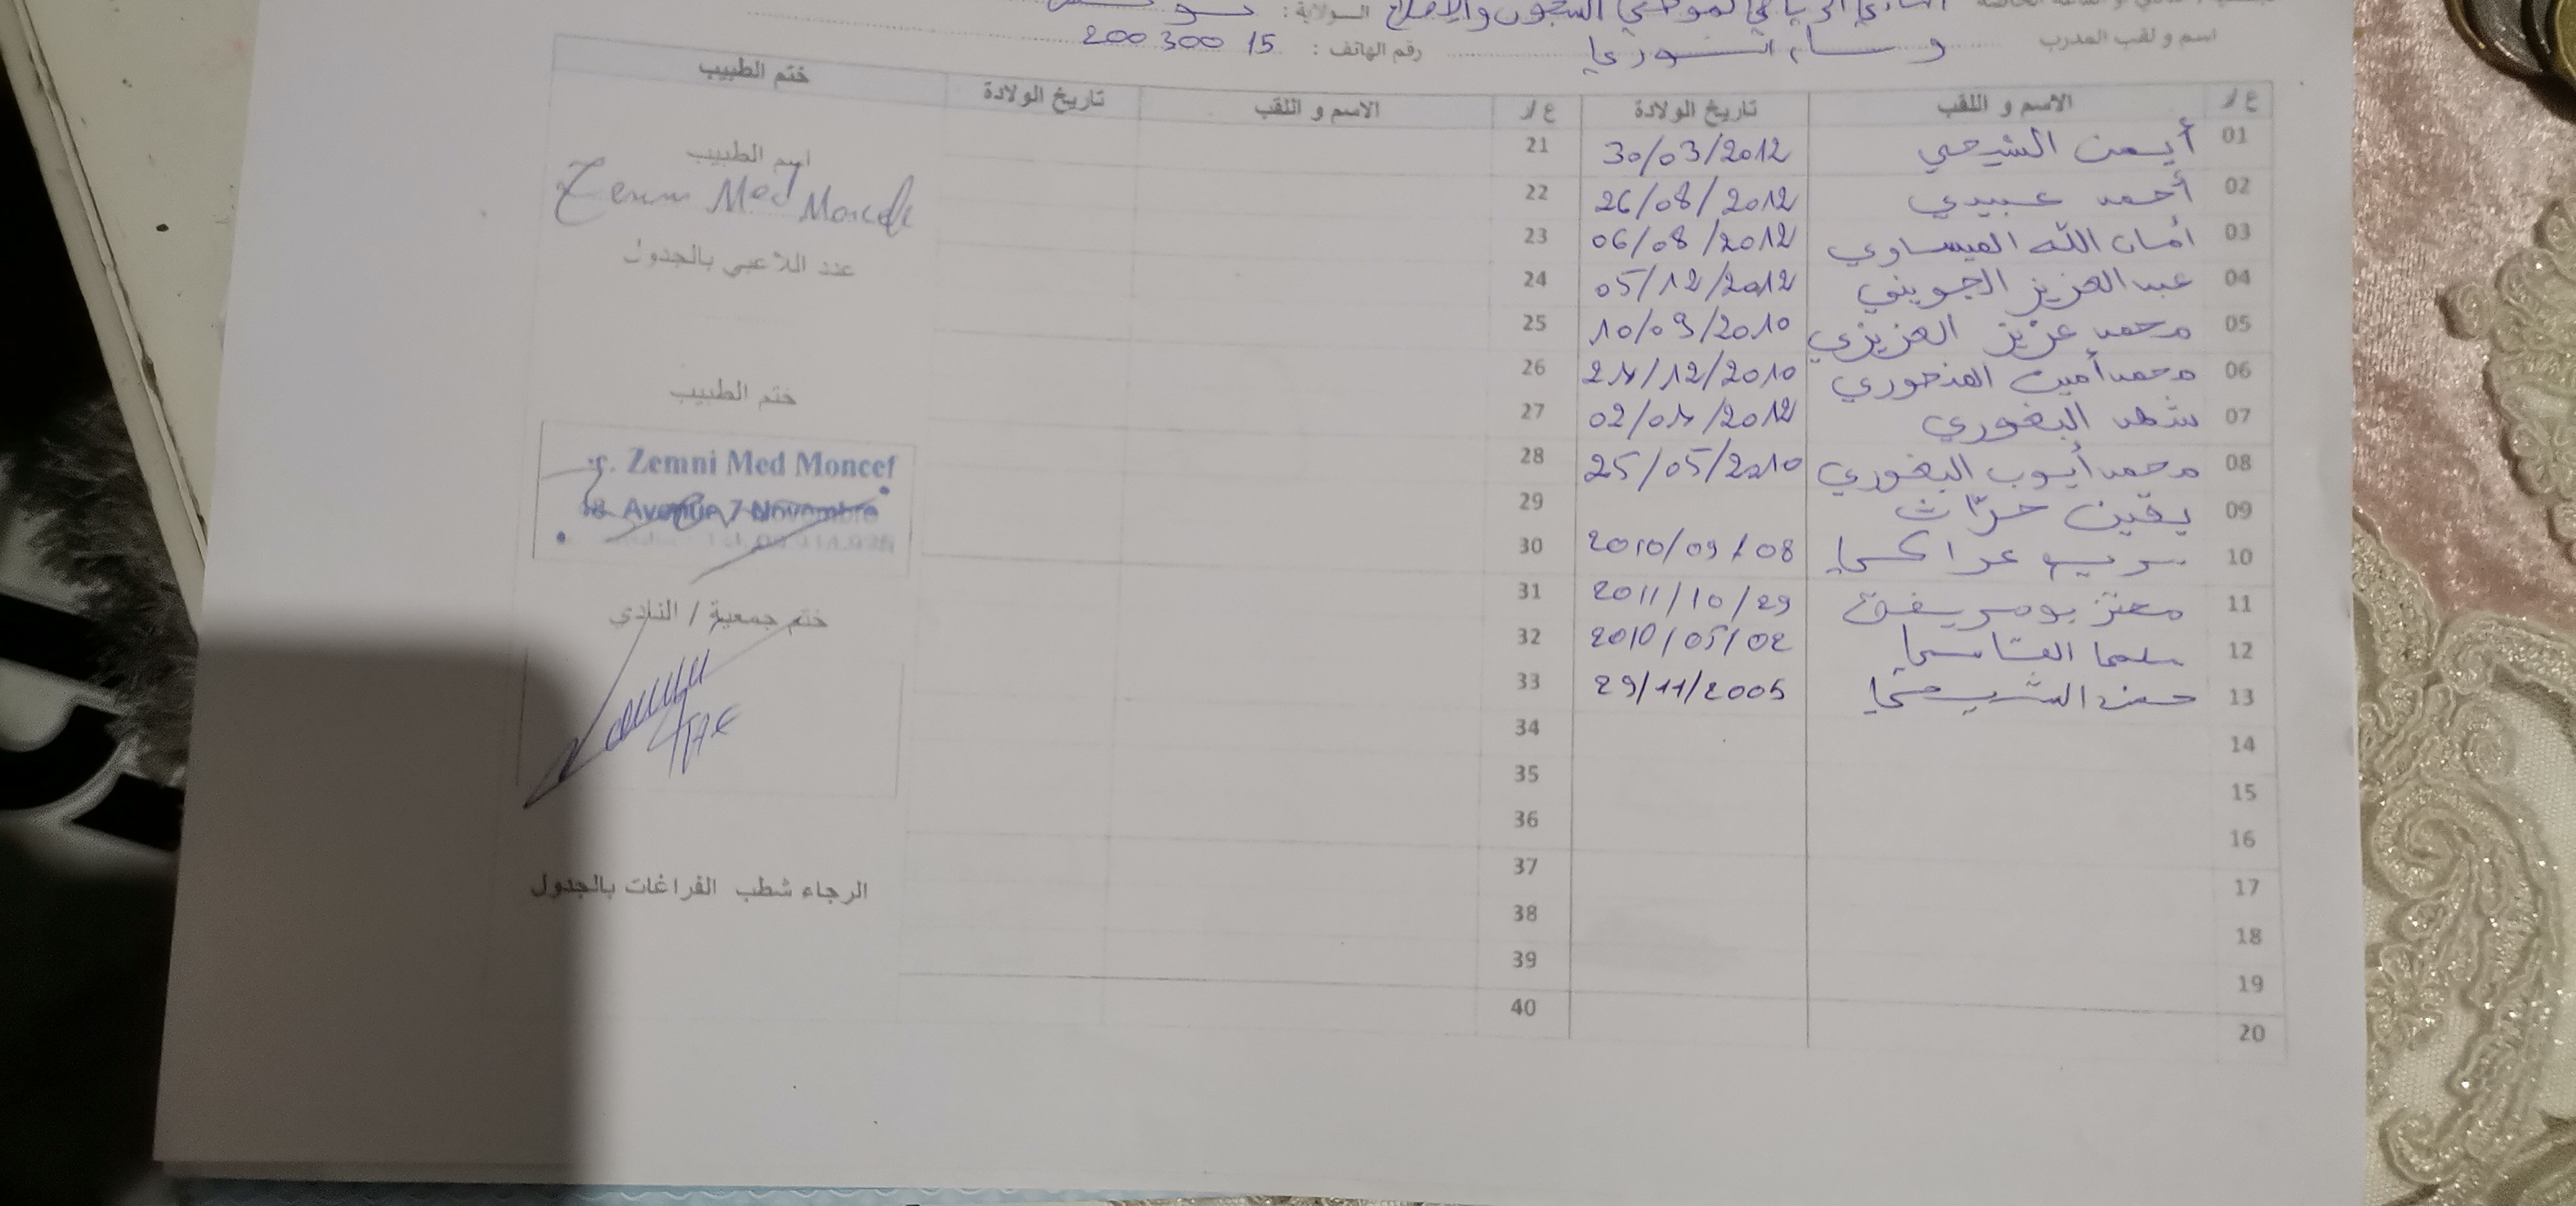 النادي الرياضي لموظفي السجون والإصلاح الولاية :
اسم و لقب المدرب وسام النوري رقم الهاتف : 200 300 15
ع/ر الاسم و اللقب تاريخ الولادة ع/ر الاسم و اللقب تاريخ الولادة ختم الطبيب
01 أيمن الشيحي 30/03/2012 21
02 أحمد عبيدي 26/08/2012 22
03 أمان الله العيساوي 06/08/2012 23
04 عبد العزيز الجويني 05/12/2012 24
05 محمد عزيز العزيزي 10/09/2010 25
06 محمد أمين 24/12/2010 26
07 البغوري 02/04/2012 27
08 محمد أيوب البغوري 25/05/2010 28
09 يقين حرّاث 29
10 2010/09/08 30
11 معتز 2011/10/29 31
12 2010/05/02 32
13 29/11/2005 33
14 34
15 35
16 36
17 37
18 38
19 39
20 40
اسم الطبيب
Zemni Med Moncef
عدد اللاعبي بالجدول
ختم الطبيب
Dr. Zemni Med Moncef
18 Avenue 7 Novembre
ختم جمعية / النادي
الرجاء شطب الفراغات بالجدول